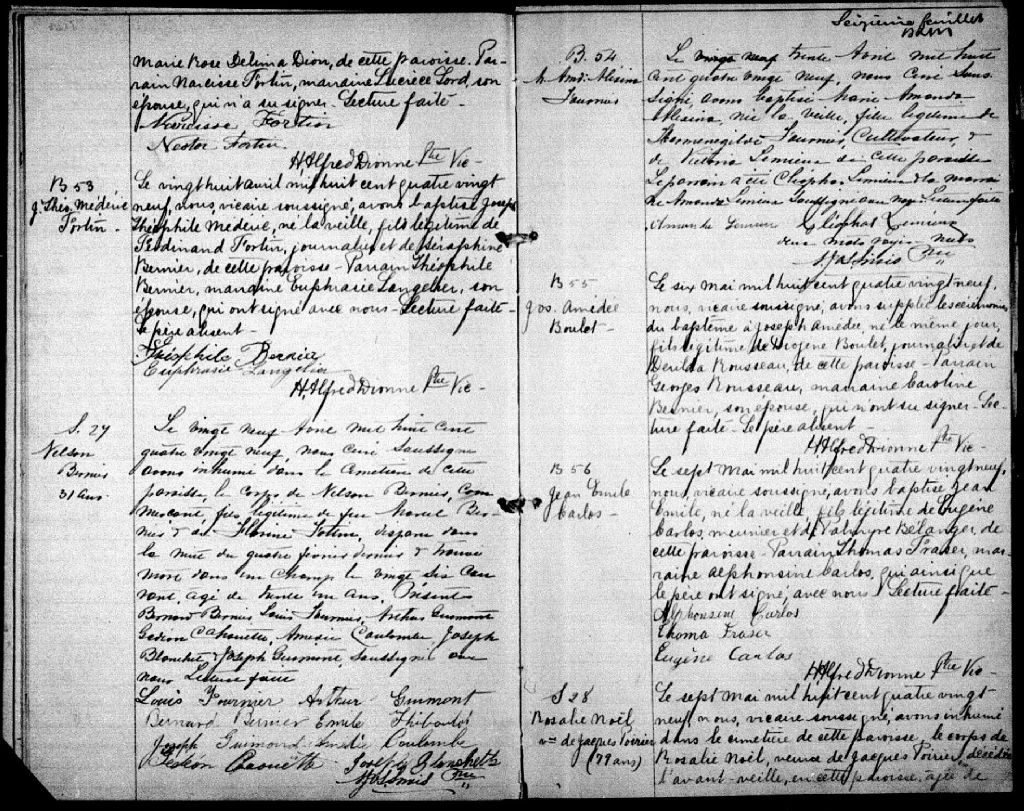 Marie Rose Délima Dion, de cette paroisse. Par-
rain Narcisse Fortin, marraine Lucrèce Lord, son
épouse, qui n'a su signer. Lecture faite.
Narcisse Fortin
Nestor Fortin
H. Alfred Dionne Ptre Vic-
B 53
J. Théo. Médéric
Fortin
Le vingt huit avril mil huit cent quatre vingt
neuf, nous, vicaire soussigné, avons baptisé Joseph
Théophile Médéric, né la veille, fils légitime de
Ferdinand Fortin, journalier et de Séraphine
Bernier, de cette paroisse - Parrain Théophile
Bernier, marraine Euphrasie Langelier, son
épouse, qui ont signé avec nous - Lecture faite -
Le père absent -
Théophile Bernier
Euphrasie Langelier
H. Alfred Dionne Ptre Vic-
S. 27
Nelson
Bernier
31 ans
Le vingt neuf Avril mil huit cent
quatre vingt neuf, nous curé soussigné
avons inhumé dans le cimetière de cette
paroisse, le corps de Nelson Bernier,
fils légitime de feu Marcel Ber-
nier & de Fortin, disparu dans
la nuit du quatre février dernier & trouvé
mort dans un champ le vingt six cou-
rant, agé de trente un ans. Présents
Bernard Bernier Louis Fournier, Arthur Guimont
Gédéon Caouette, Amédée Coulombe, Joseph
Blanchet & Joseph Guimont, soussignés avec
nous Lecture faite
Louis Fournier Arthur Guimont
Bernard Bernier Emile Thiboutot
Joseph Guimond Amédé Coulombe
Gedeon Caouette Joseph Blanchette
Ptre
Seizième feuillet
B. 54
M. Amda Alesina
Fournier
Le vingt neuf trente Avril mil huit
cent quatre vingt neuf, nous Curé sous-
signé, avons baptisé Marie Amanda
Alesina, née la veille, fille légitime de
Herménégilde Fournier, Cultivateur, &
de Victoria Lemieux de cette paroisse
Le parrain a été Cléophas Lemieux & la marrai-
ne Amanda Lemieux soussignés avec nous. Lecture faite
Amanda Lemieux Cléophas Lemieux
deux mots rayés nuls
Ptre
B 55
Jos. Amédée
Boulet -
Le six mai mil huit cent quatre vingt neuf,
nous, vicaire soussigné, avons suppléé les cérémonies
du baptême à Joseph Amédée, né le même jour,
fils légitime de Diogène Boulet, journalier et de
Rousseau, de cette paroisse - Parrain
Georges Rousseau, marraine Caroline
Bernier, son épouse, qui n'ont su signer - Lec-
ture faite - Le père absent -
H. Alfred Dionne Ptre Vic-
B 56
Jean Emile
Carlos -
Le sept mai mil huit cent quatre vingt neuf,
nous, vicaire soussigné, avons baptisé Jean
Emile, né la veille, fils légitime de Eugène
Carlos, meunier et de Palmyre Bélanger, de
cette paroisse - Parrain Thomas Fraser, mar-
raine Alphonsine Carlos, qui ainsi que
le père ont signé avec nous - Lecture faite -
Alphonsine Carlos
Thoma Fraser
Eugène Carlos
H. Alfred Dionne Ptre Vic-
S 28
Rosalie Noël
ve de Jacques Poirier
(79 ans)
Le sept mai mil huit cent quatre vingt
neuf, nous, vicaire soussigné, avons inhumé
dans le cimetière de cette paroisse, le corps de
Rosalie Noël, veuve de Jacques Poirier, décédée
l'avant-veille, en cette paroisse, agée de